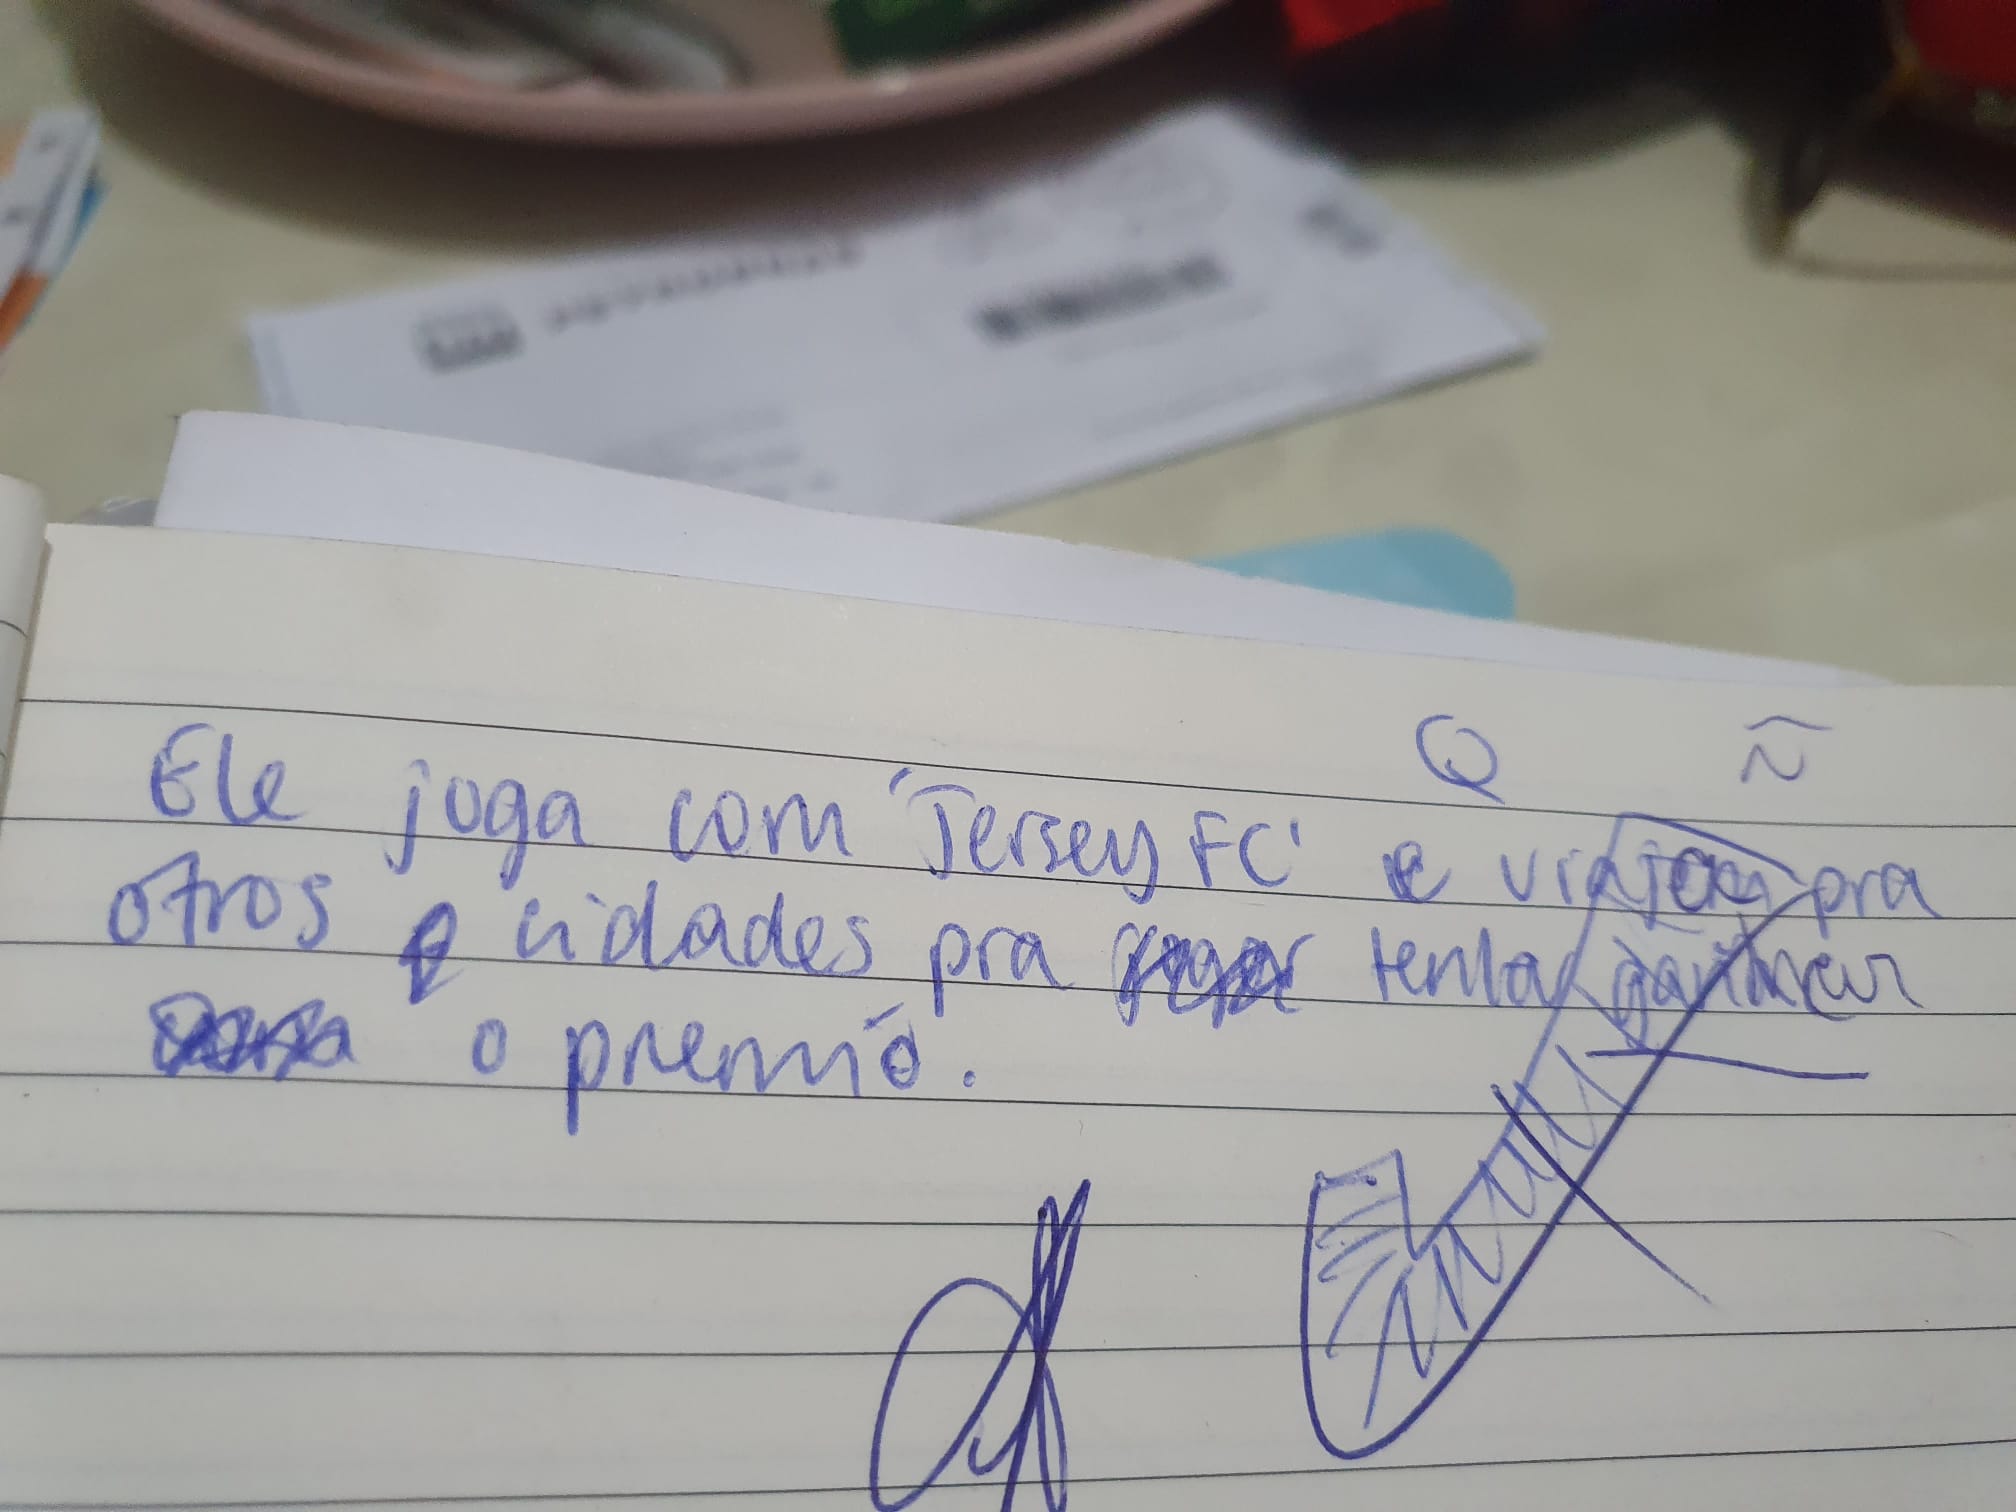 Q Ñ
Ele joga com 'Jersey FC' e viajar pra
otros cidades pra tentar ganhar
o premió.